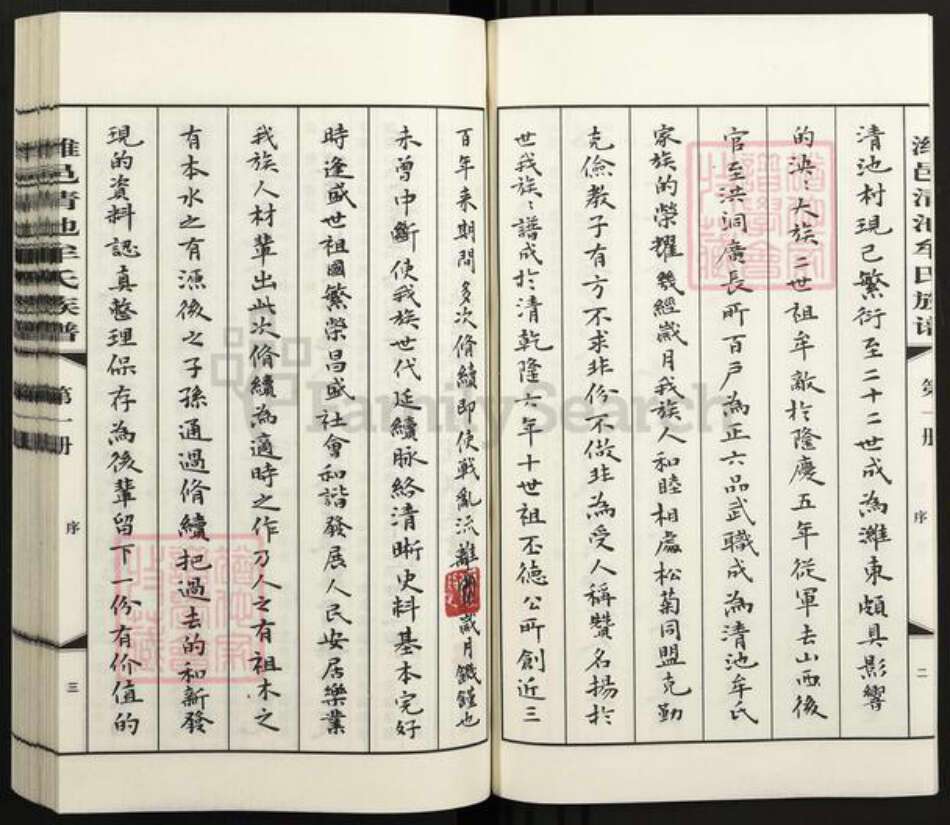 潍邑清池牟氏族谱
第一册
序
二
清池村現已繁衍至二十二世成為濰東頗具影響
的泱〻大族二世祖牟敵扵隆慶五年從軍去山西後
官至洪洞廣長所百户為正六品武職成為清池牟氏
家族的榮耀幾經歲月我族人和睦相處松菊同盟克勤
克儉教子有方不求非份不做非為受人稱贊名揚扵
世我族〻譜成扵清乾隆六年十世祖丕德公所創近三
百年来期間多次脩續即使戰亂流離歲月饑饉也
未曾中斷使我族世代延續脉絡清晰史料基本完好
時逢盛世祖國繁榮昌盛社會和諧發展人民安居樂業
我族人材輩出此次脩續為適時之作乃人之有祖木之
有本水之有源後之子孫通過脩續把過去的和新發
現的資料認真整理保存為後輩留下一份有价值的
潍邑清池牟氏族谱
第一册
序
三
FamilySearch